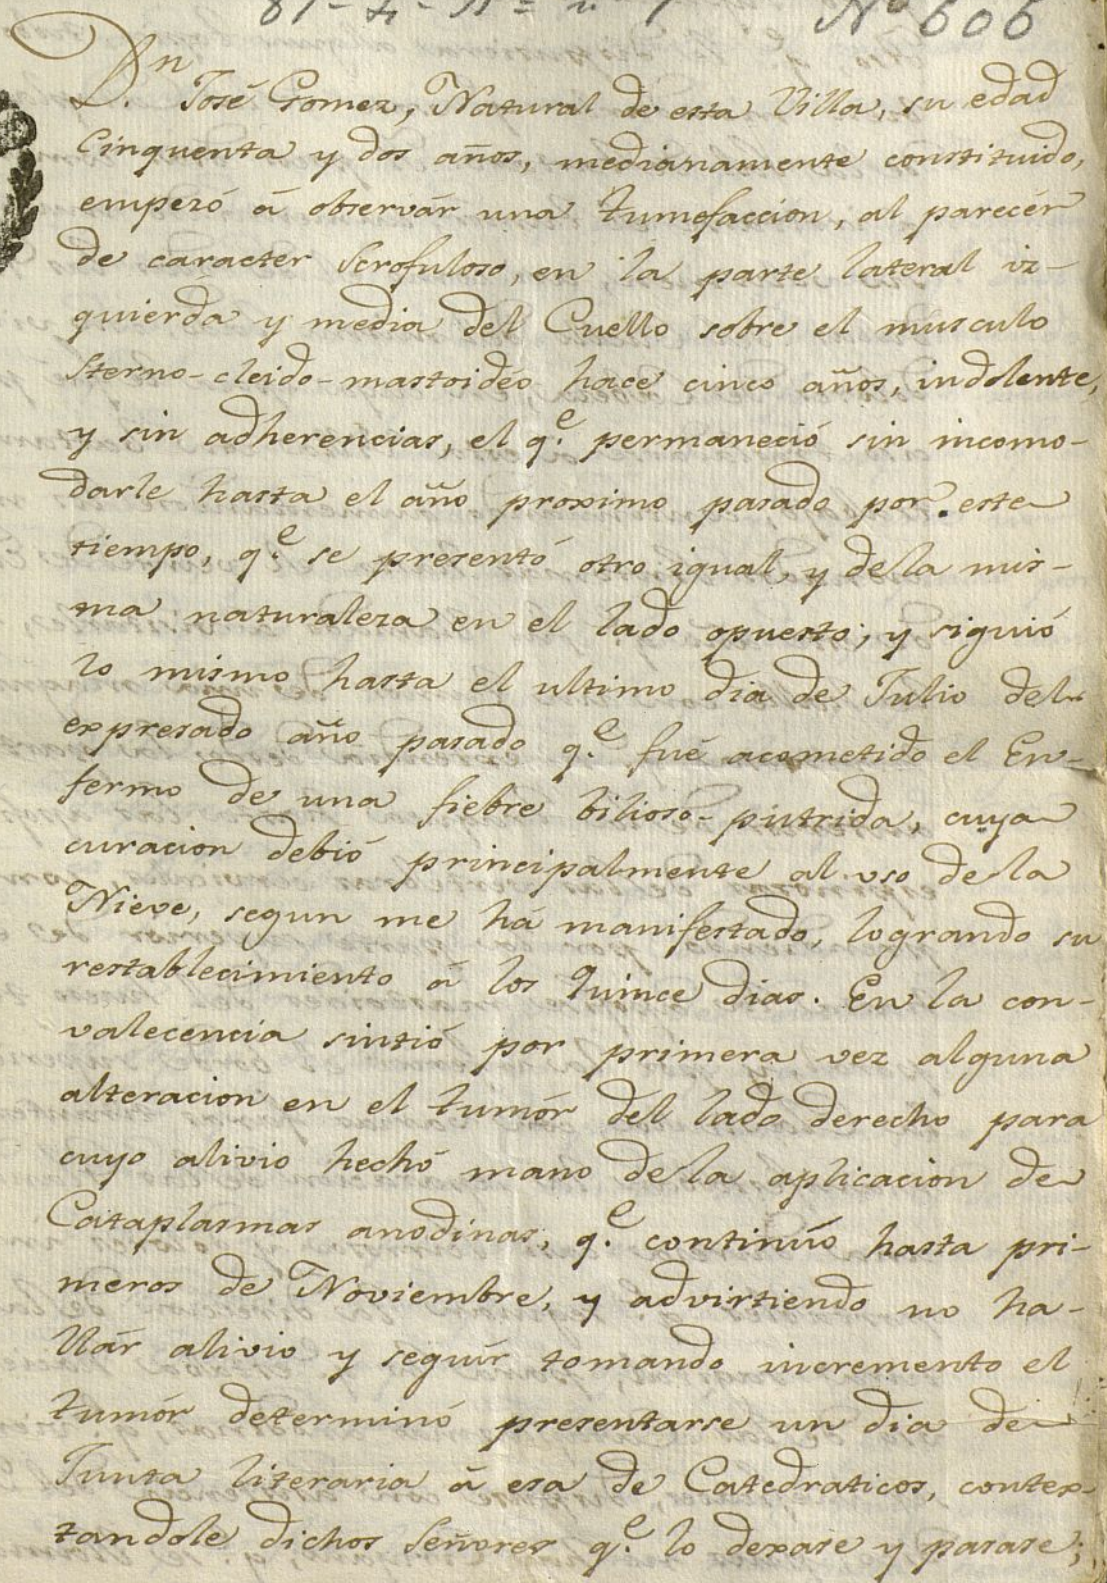 Nº 606
D.n José Gomez, Natural de esta Villa, su edad
Cinquenta y dos años, medianamente constituido,
empezó á observár una tumefaccion, al parecér
de caracter Scrofuloso, en la parte lateral iz-
quierda y media del Cuello sobre el musculo
Sterno-cleido-mastoidéo hace cinco años, indolente,
y sin adherencias, el q.e permaneció sin incomo-
darle hasta el año proximo pasado por este
tiempo, q.e se presentó otro igual, y de la mis-
ma naturaleza en el lado opuesto; y siguió
lo mismo hasta el ultimo dia de Julio del
expresado año pasado q.e fué acometido el En-
fermo de una fiebre bilioso-putrida, cuya
curacion debió principalmente al uso de la
Nieve, segun me há manifestado, logrando su
restablecimiento á los quince dias. En la con-
valecencia sintió por primera vez alguna
alteracion en el tumór del lado derecho para
cuyo alivio hechó mano de la aplicacion de
Cataplasmas anodinas, q.e continúo hasta pri-
meros de Noviembre, y advirtiendo no ha-
llár alivio y seguír tomando incremento el
tumór determinó presentarse un dia de
Junta literaria á esa de Catedraticos, contex-
tandole dichos Señores q.e lo dexase y pasase;